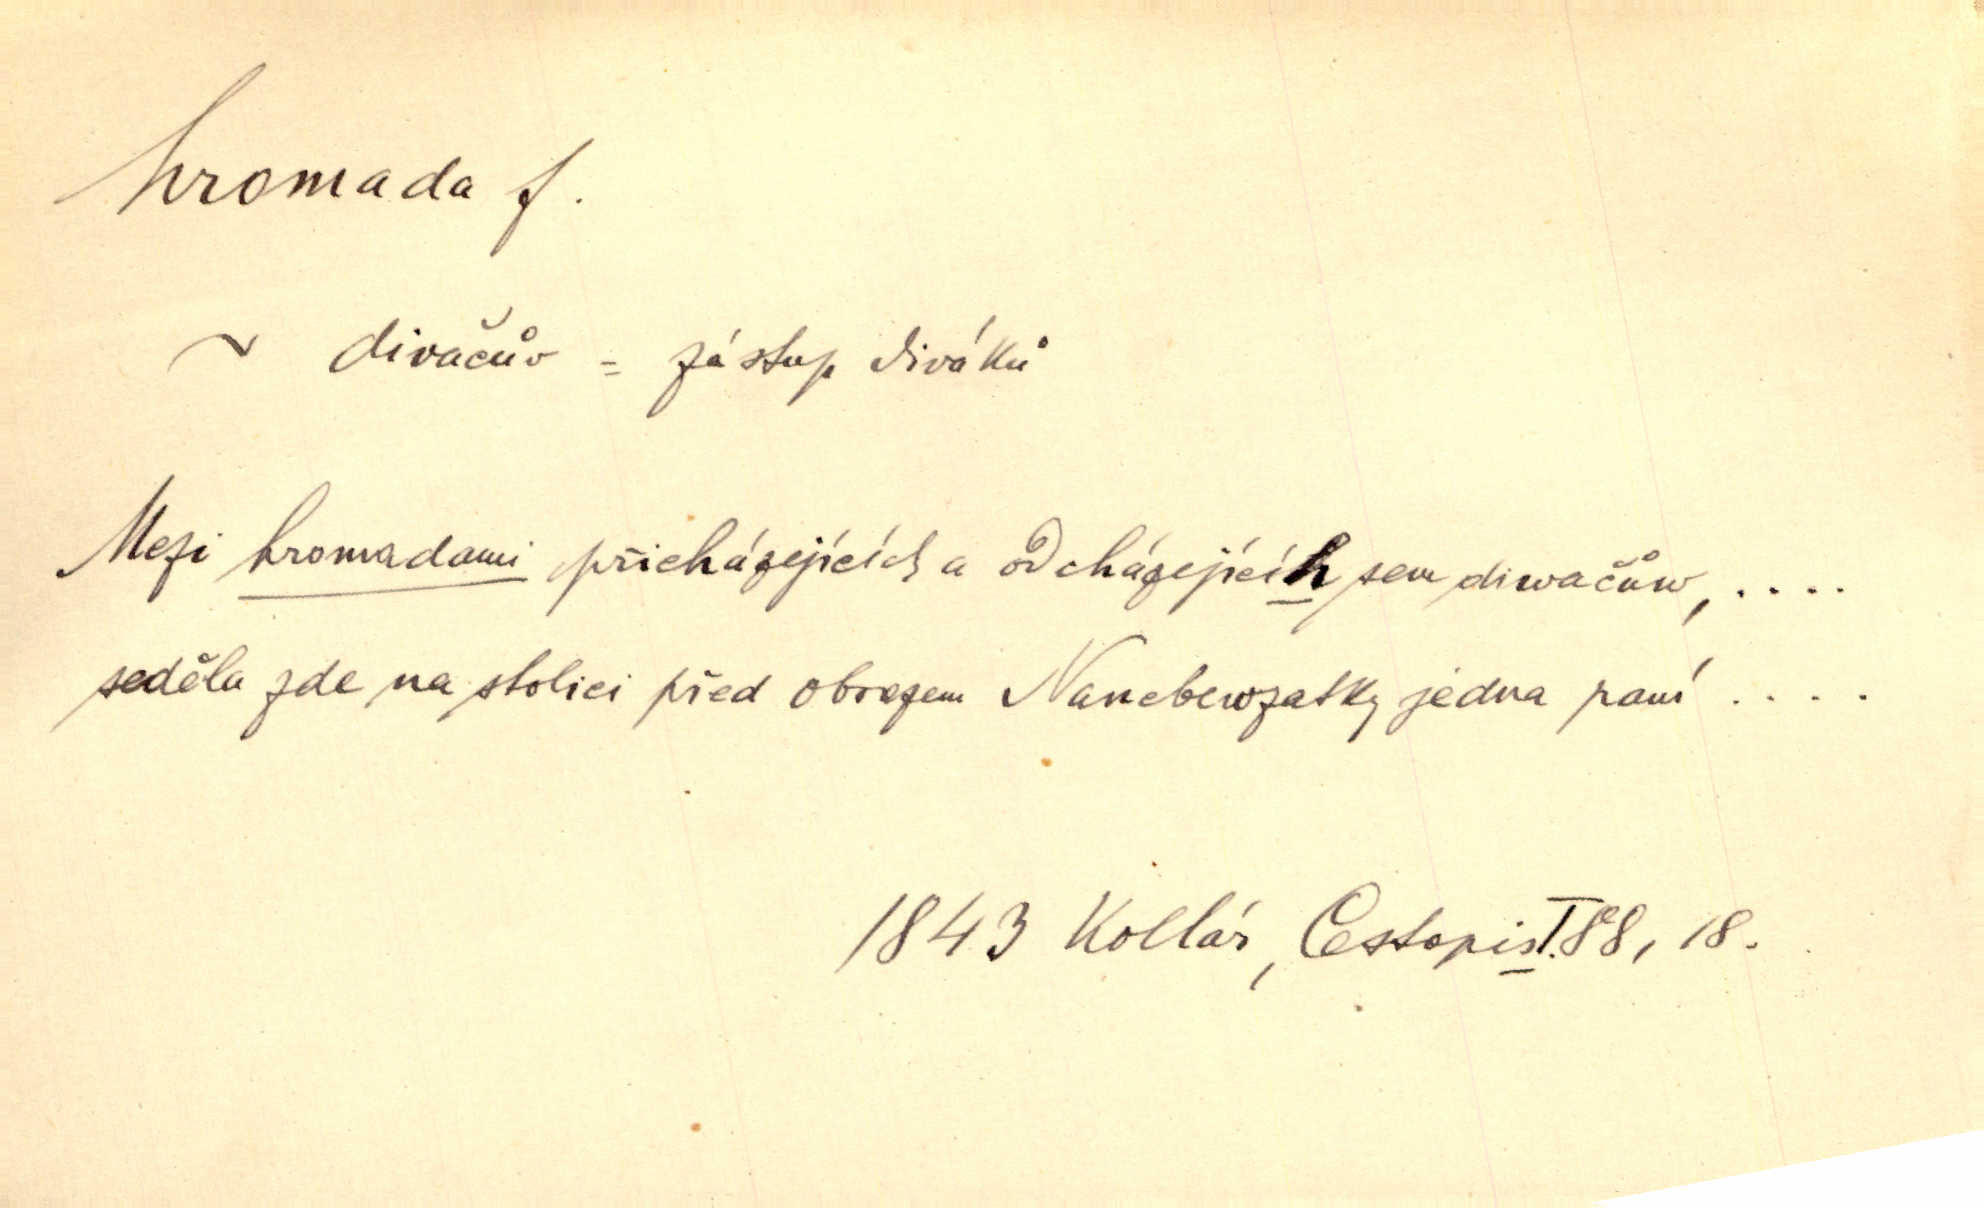 hromada f.
~ divačův = zástup diváků
Mezi hromadami přicházejících a odcházejícíh sem diwačůw, ....
seděla zde na stolici před obrazem Nanebewzatky jedna paní ....
1843 Kollár, Cestopis I. 88, 18.